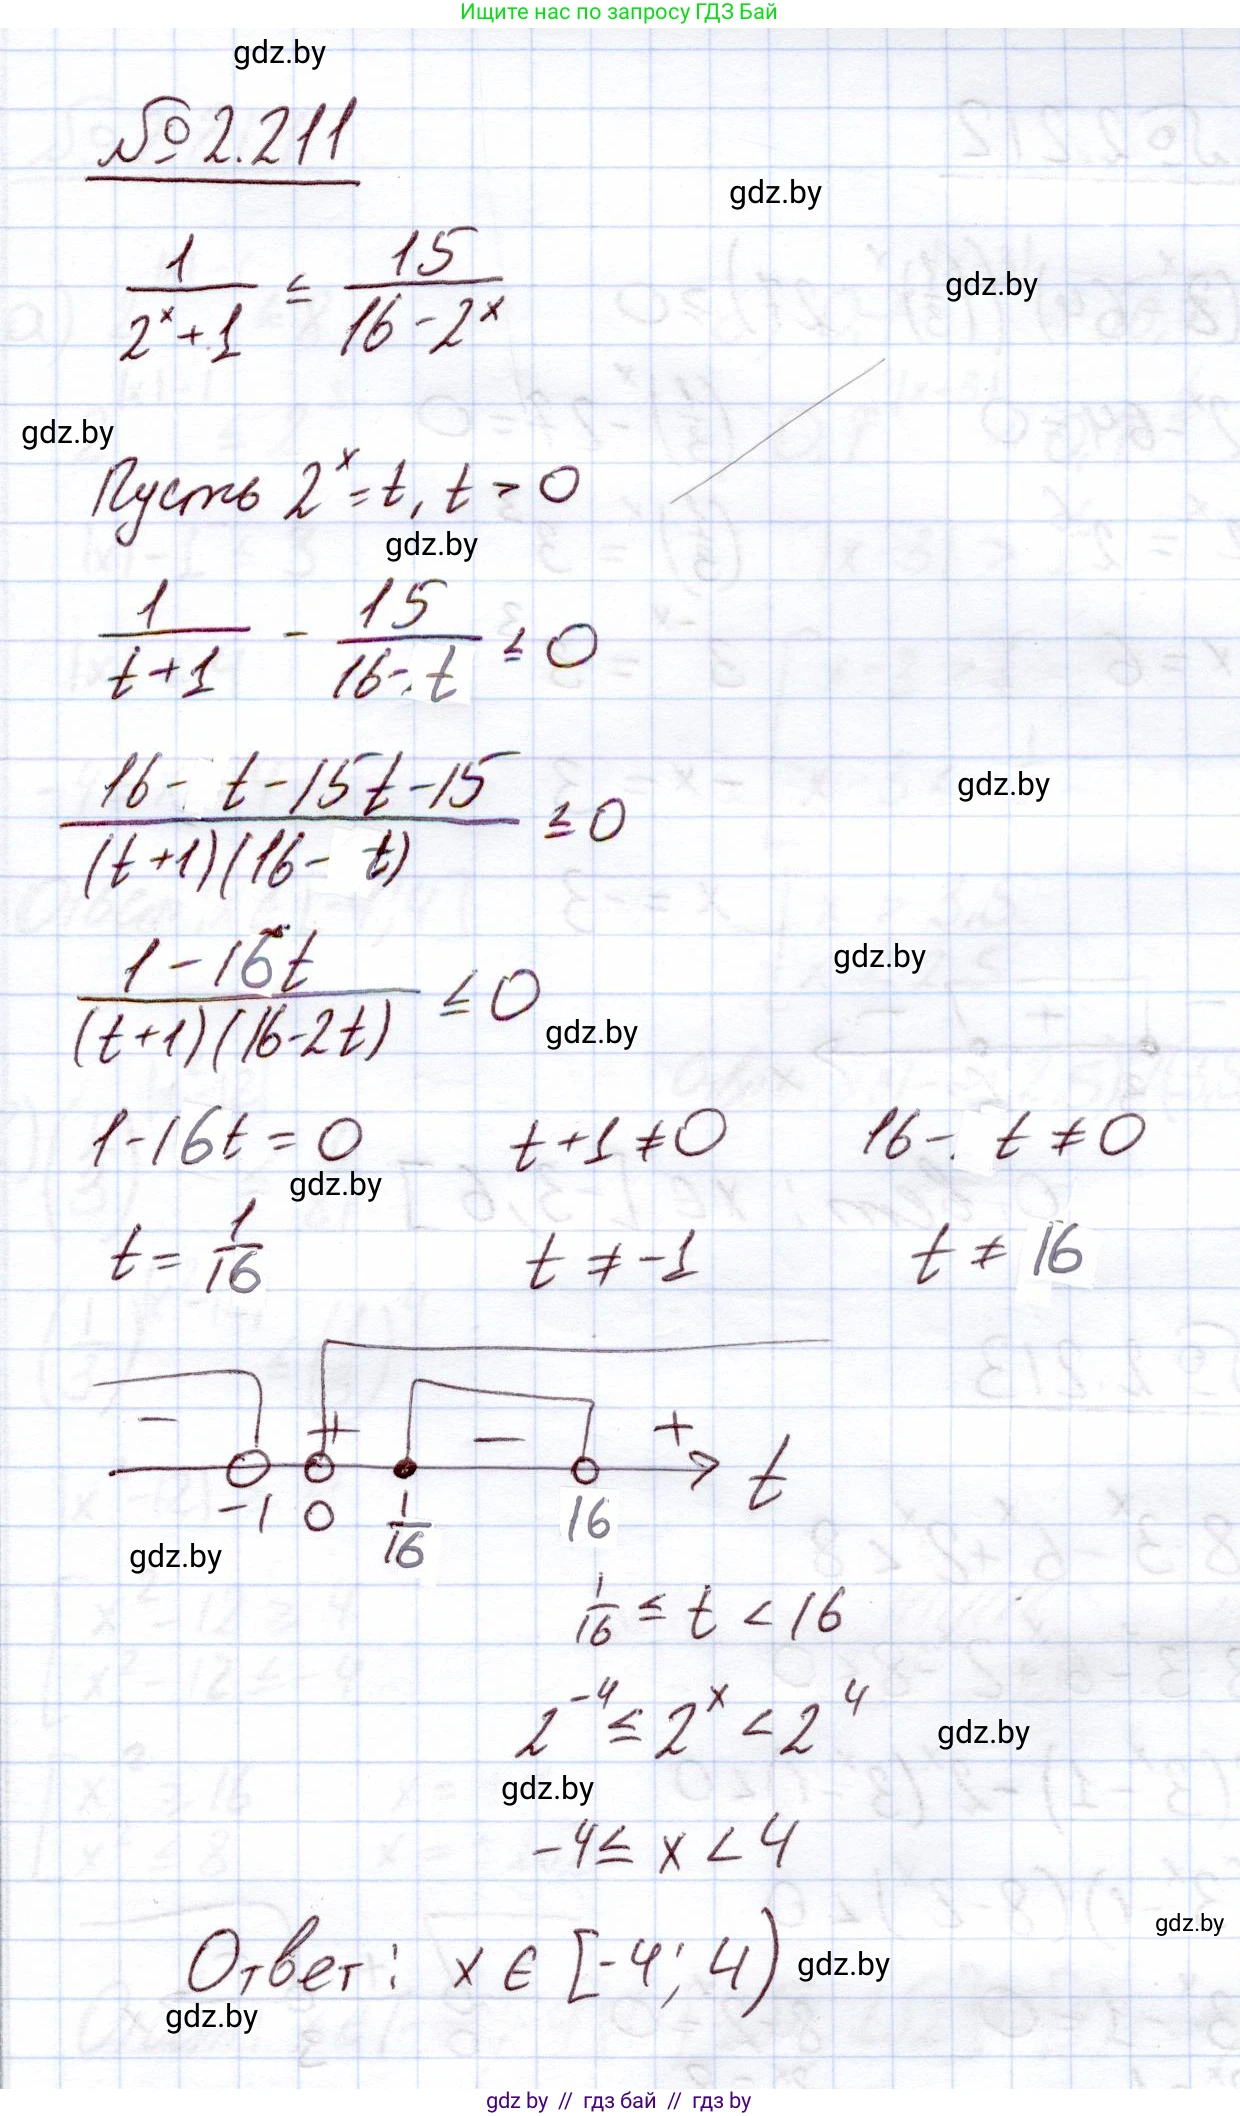 Ищите нас по запросу ГДЗ Бай
gdz.by
№ 2.211
gdz.by
1/(2^x+1) ≤ 15/(16-2^x)
gdz.by
gdz.by
Пусть 2^x = t, t > 0
gdz.by
1/(t+1) - 15/(16-.t) ≤ 0
(16- t-15t-15)/((t+1)(16- t)) ≤ 0
gdz.by
(1-16t)/((t+1)(16-2t)) ≤ 0
gdz.by
gdz.by
1-16t = 0 t+1 ≠ 0 16-. t ≠ 0
gdz.by
t = 1/16 t ≠ -1 t ≠ 16
- + - + t
-1 0 1/16 16
gdz.by
1/16 ≤ t < 16
2^-4 ≤ 2^x < 2^4
gdz.by
gdz.by
-4 ≤ x < 4
gdz.by
Ответ: x ∈ [-4; 4)
gdz.by
gdz.by
gdz by // гдз бай // гдз by